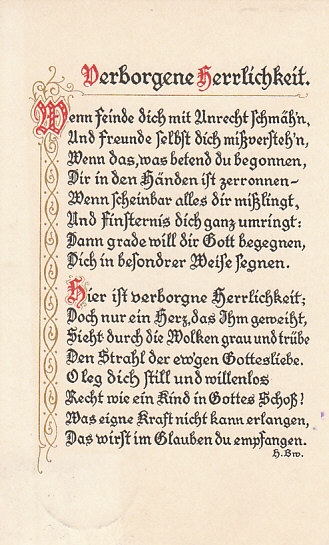 Verborgene Herrlichkeit.
Wenn Feinde dich mit Unrecht schmäh'n,
Und Freunde selbst dich mißversteh'n,
Wenn das, was betend du begonnen,
Dir in den Händen ist zerronnen–
Wenn scheinbar alles dir mißlingt,
Und Finsternis dich ganz umringt:
Dann grade will dir Gott begegnen,
Dich in besondrer Weise segnen.
Hier ist verborgne Herrlichkeit;
Doch nur ein Herz, das Ihm geweiht,
Sieht durch die Wolken grau und trübe
Den Strahl der ew'gen Gottesliebe.
O leg dich still und willenlos
Recht wie ein Kind in Gottes Schoß!
Was eigne Kraft nicht kann erlangen,
Das wirst im Glauben du empfangen.
H. Bw.